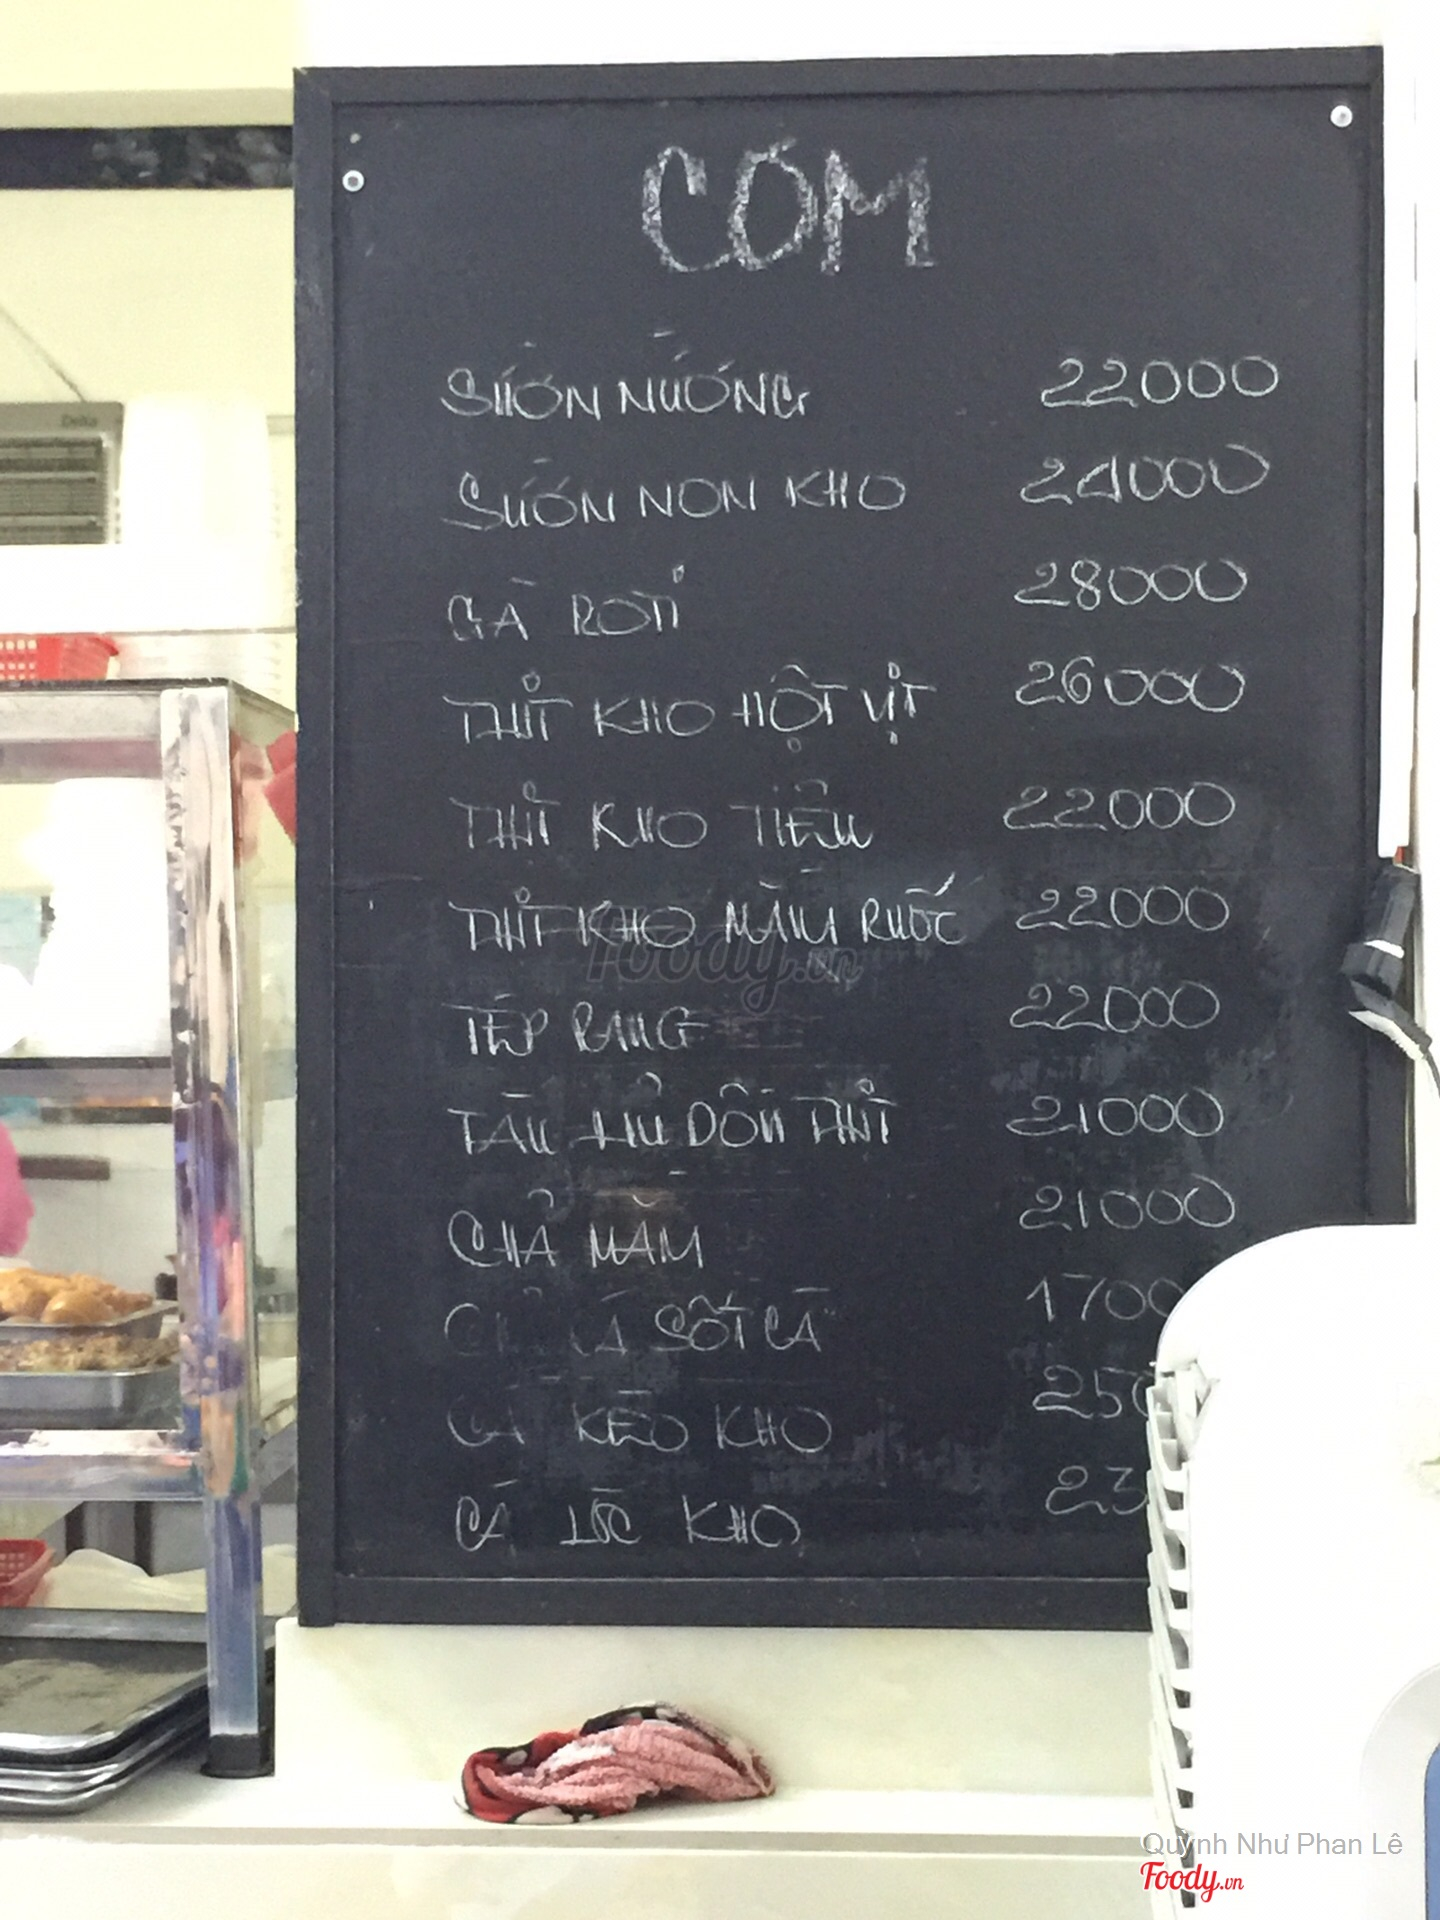 CƠM
SƯỜN NƯỚNG 22000
SƯỜN NON KHO 24000
GÀ ROTI 28000
THỊT KHO HỘT VỊT 26000
THỊT KHO TIÊU 22000
THỊT KHO MẮM RUỐC 22000
TÉP RANG 22000
TÀU HỦ DỒN THỊT 21000
CHẢ MẮM 21000
CÁ SỐT CÀ 1700
CÁ KÈO KHO 250
CÁ LÓC KHO 23
Foody.vn
Delta
Quỳnh Như Phan Lê
Foody.vn